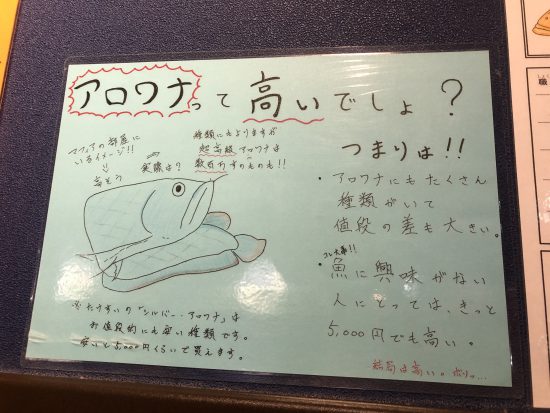 アロワナって高いでしょ?
マフィアの部屋に
いるイメージ!!
高そう
実際は?
種類にもよりますが
超高級アロワナは
数百万するものも!!
つまりは!!
・アロワナにもたくさん
種類がいて
値段の差も大きい。
コレ大事!!
・魚に興味がない
人にとっては、きっと
5,000円でも高い。
結局は高い。
「シルバー・アロワナ」は
お値段的にも安い種類です。
安いと5,000円くらいで買えます。
職